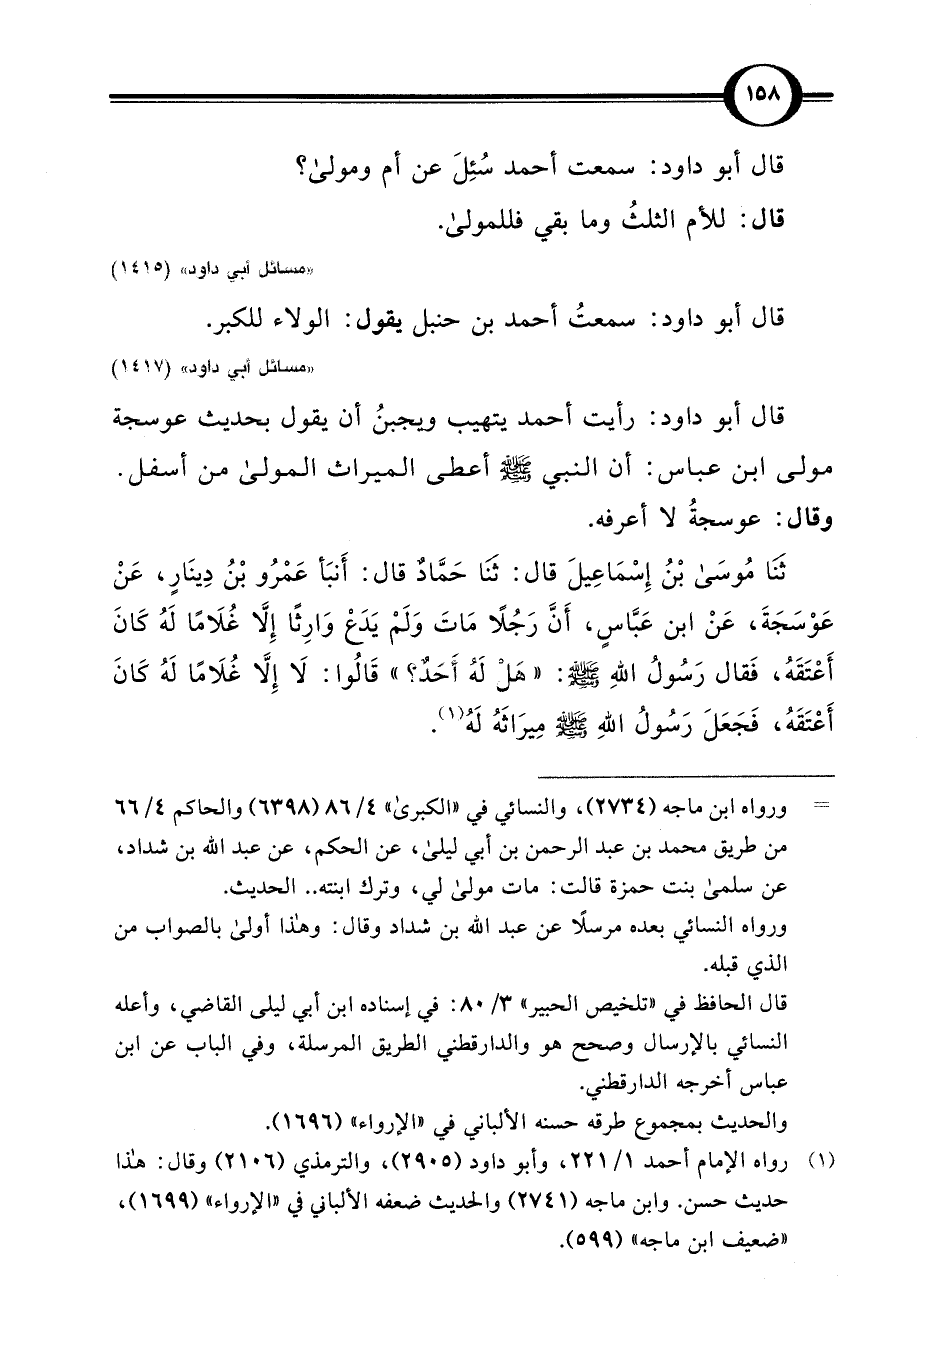 ١٥٨
قال أبو داود: سمعت أحمد سُئِلَ عن أم ومولىٰ؟
قال: للأم الثلثُ وما بقي فللمولىٰ.
«مسائل أبي داود» (١٤١٥)
قال أبو داود: سمعتُ أحمد بن حنبل يقول: الولاء للكبر.
«مسائل أبي داود» (١٤١٧)
قال أبو داود: رأيت أحمد يتهيب ويجبنُ أن يقول بحديث عوسجة
مولى ابن عباس: أن النبي ﷺ أعطى الميراث المولىٰ من أسفل.
وقال: عوسجةُ لا أعرفه.
ثَنَا مُوسَىٰ بْنُ إِسْمَاعِيلَ قال: ثَنَا حَمَّادٌ قال: أَنبَأ عَمْرُو بْنُ دِينَارٍ، عَنْ
عَوْسَجَةَ، عَنْ ابن عَبَّاسٍ، أَنَّ رَجُلًا مَاتَ وَلَمْ يَدَعْ وَارِثًا إِلَّا غُلَامًا لَهُ كَانَ
أَعْتَقَهُ، فَقال رَسُولُ اللهِ ﷺ: «هَلْ لَهُ أَحَدٌ؟» قَالُوا: لَا إِلَّا غُلَامًا لَهُ كَانَ
أَعْتَقَهُ، فَجَعَلَ رَسُولُ اللهِ ﷺ مِيرَاثَهُ لَهُ(١).
= ورواه ابن ماجه (٢٧٣٤)، والنسائي في «الكبرىٰ» ٤/ ٨٦ (٦٣٩٨) والحاكم ٤/ ٦٦
من طريق محمد بن عبد الرحمن بن أبي ليلىٰ، عن الحكم، عن عبد الله بن شداد،
عن سلمىٰ بنت حمزة قالت: مات مولىٰ لي، وترك ابنته.. الحديث.
ورواه النسائي بعده مرسلًا عن عبد الله بن شداد وقال: وهٰذا أولىٰ بالصواب من
الذي قبله.
قال الحافظ في «تلخيص الحبير» ٣/ ٨٠: في إسناده ابن أبي ليلى القاضي، وأعله
النسائي بالإرسال وصحح هو والدارقطني الطريق المرسلة، وفي الباب عن ابن
عباس أخرجه الدارقطني.
والحديث بمجموع طرقه حسنه الألباني في «الإرواء» (١٦٩٦).
(١) رواه الإمام أحمد ١/ ٢٢١، وأبو داود (٢٩٠٥)، والترمذي (٢١٠٦) وقال: هٰذا
حديث حسن. وابن ماجه (٢٧٤١) والحديث ضعفه الألباني في «الإرواء» (١٦٩٩)،
«ضعيف ابن ماجه» (٥٩٩).